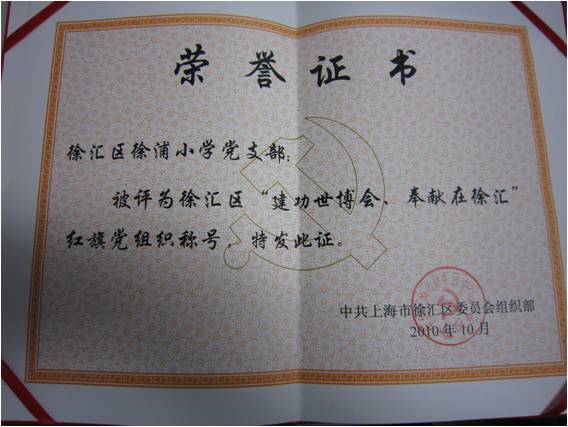 荣誉证书
徐汇区徐浦小学党支部：
被评为徐汇区“建功世博会、奉献在徐汇”
红旗党组织称号，特发此证。
中共上海市徐汇区委员会组织部
2010年10月